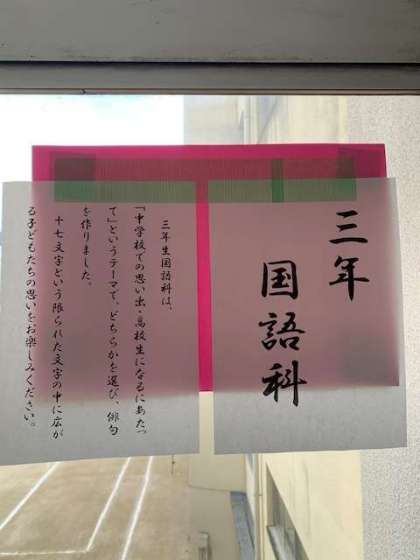 三年
国語科
三年生国語科は、
「中学校での思い出・高校生になるにあたっ
て」というテーマで、どちらかを選び、俳句
を作りました。
十七文字という限られた文字の中に広が
る子どもたちの思いをお楽しみください。